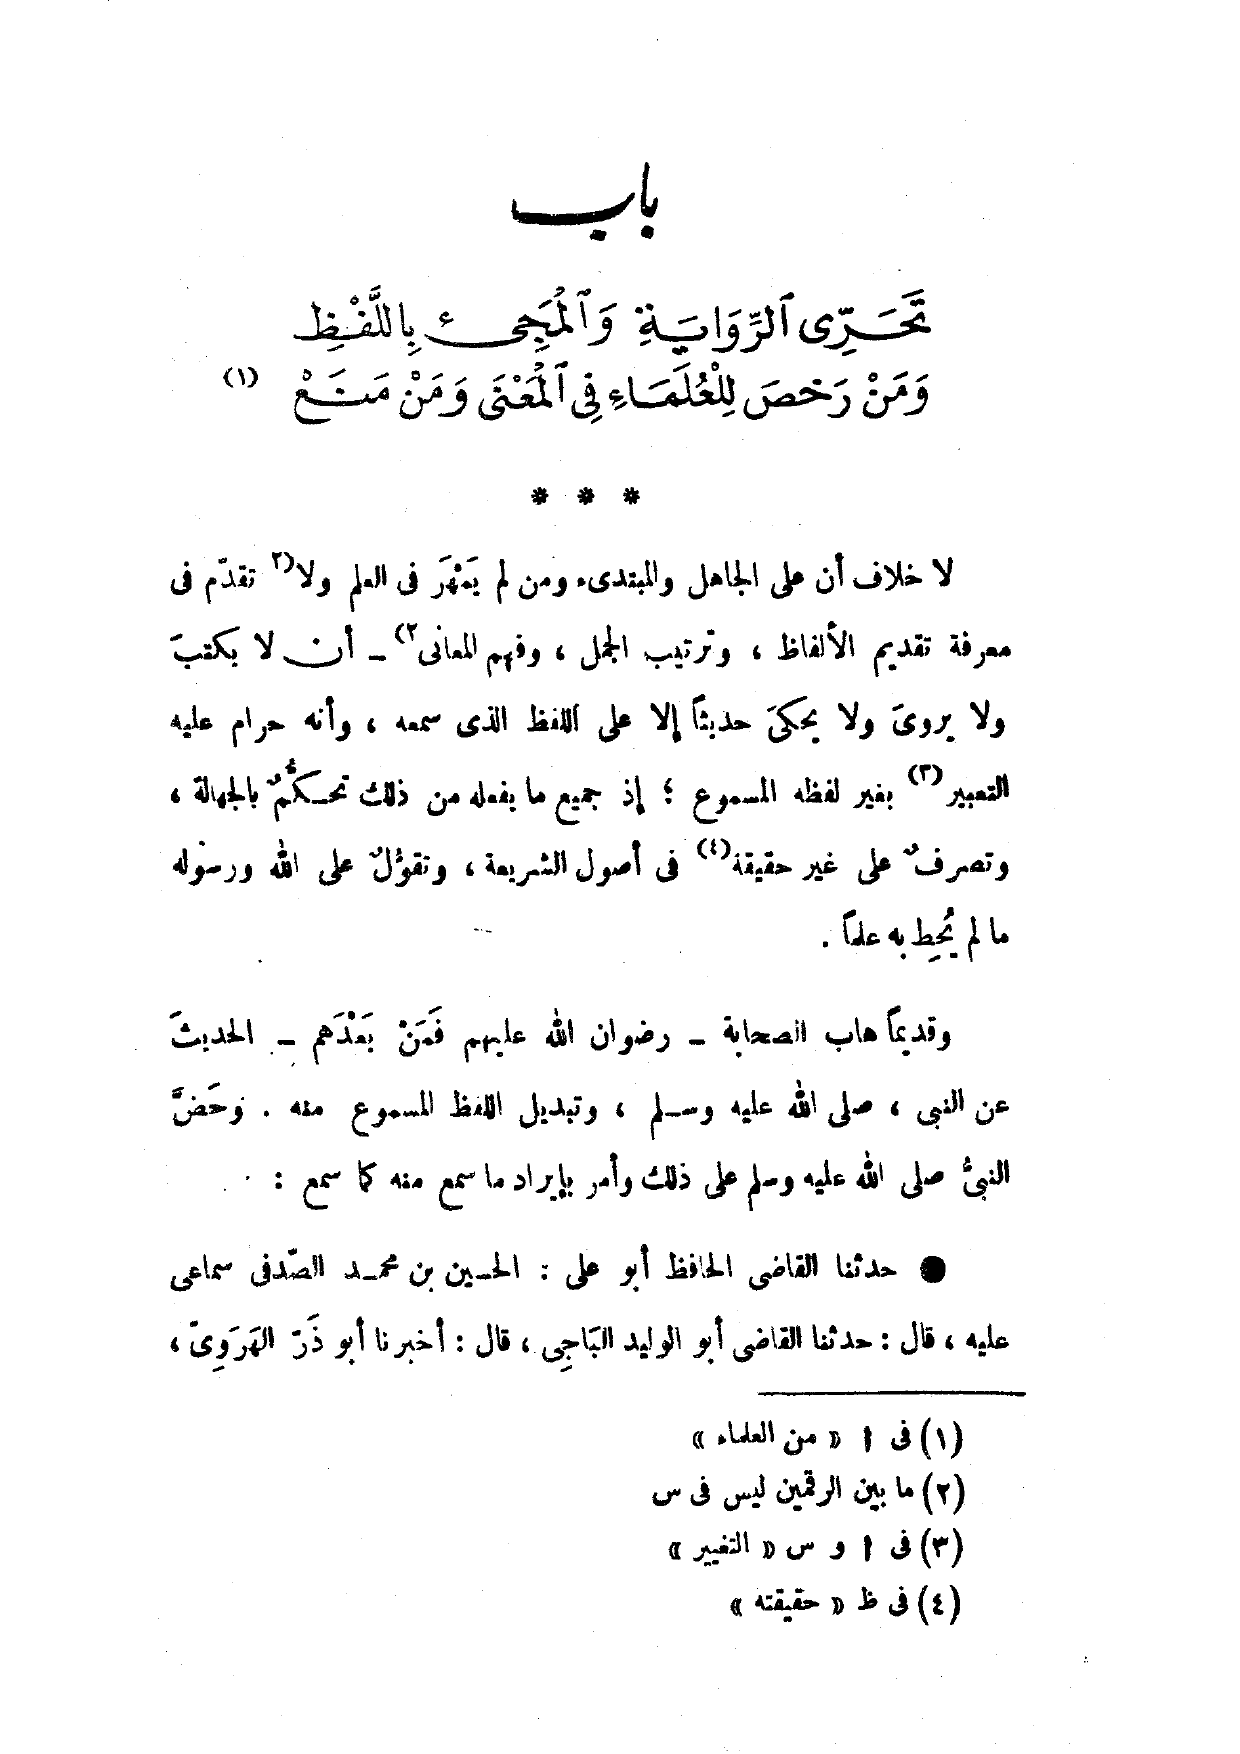 باب
تَحَرِّى ٱلرِّوَايَةِ وَٱلْمَجِىءِ بِاللَّفْظِ
وَمَنْ رَخصَ لِلْعُلَمَاءِ فِى ٱلْمَعْنَى وَمَنْ مَنَعْ (١)
* * *
لا خلاف أن على الجاهل والمبتدىء ومن لم يَمْهَرَ فى العلم ولا(٢ تقدّم فى
معرفة تقديم الألفاظ ، وترتيب الجمل ، وفهم المعانى٢) ـ أن لا يكتبَ
ولا يروىَ ولا يحكىَ حديثاً إلا على اللفظ الذى سمعه ، وأنه حرام عليه
التعبير(٣) بغير لفظه المسموع ؛ إذ جميع ما يفعله من ذلك تحكُّمٌ بالجهالة ،
وتصرفٌ على غير حقيقة(٤) فى أصول الشريعة ، وتقوُّلٌ على الله ورسوله
ما لم يُحِط به علماً .
وقديماً هاب الصحابة ـ رضوان الله عليهم فَمَنْ بَعْدَهم ـ الحديثَ
عن النبى ، صلى الله عليه وسلم ، وتبديل اللفظ المسموع منه . وحَضَّ
النبىُّ صلى الله عليه وسلم على ذلك وأمر بإيراد ما سمع منه كما سمع :
● حدثنا القاضى الحافظ أبو على : الحسين بن محمد الصّدفى سماعى
عليه ، قال : حدثنا القاضى أبو الوليد البَاجِى ، قال : أخبرنا أبو ذَرّ الهَرَوِىّ ،
(١) فى ا « من العلماء »
(٢) ما بين الرقمين ليس فى س
(٣) فى ا و س « التغيير »
(٤) فى ظ « حقيقته »